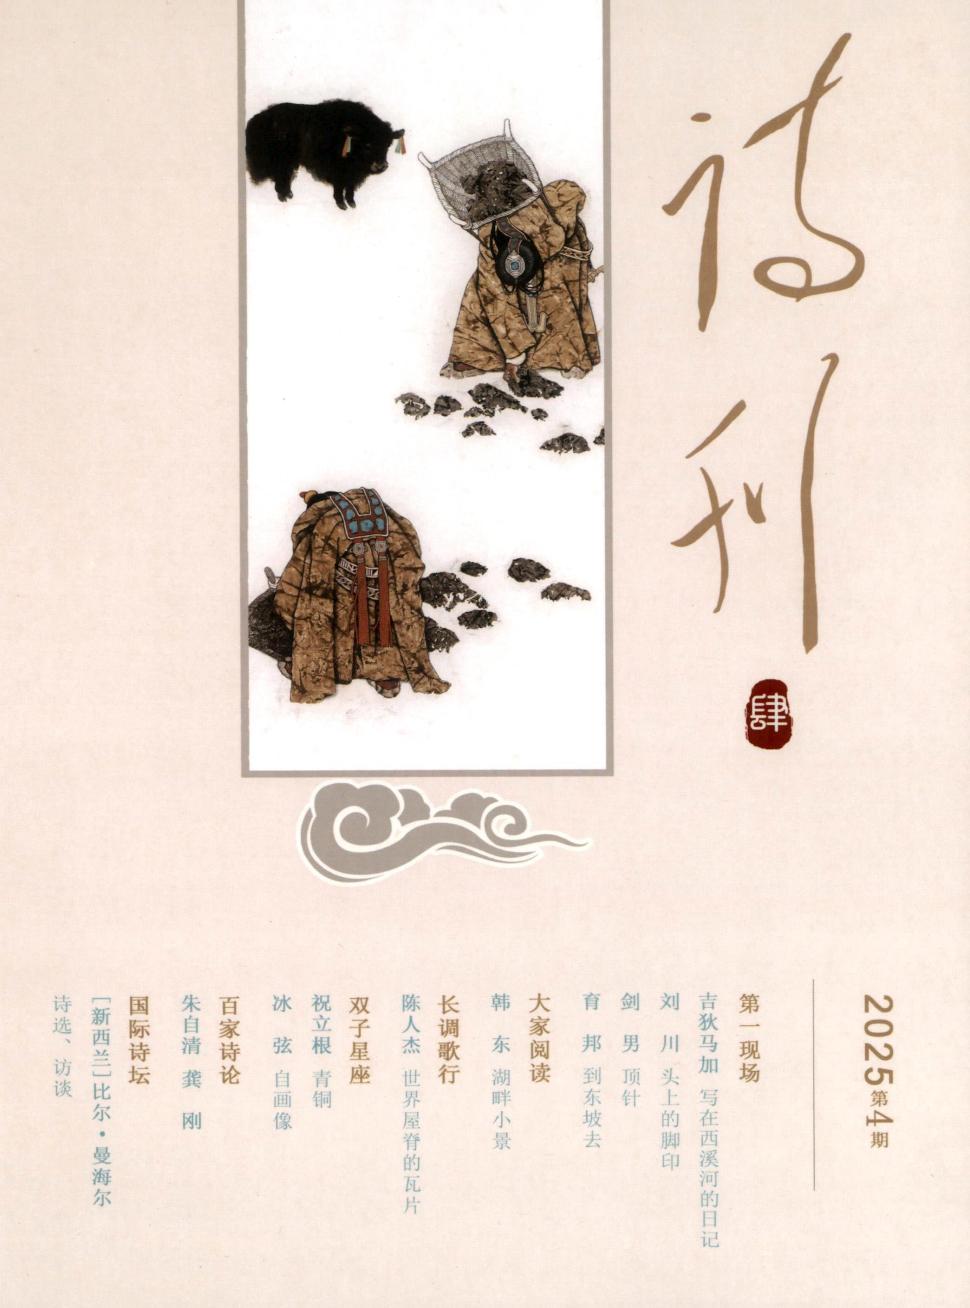 诗刊
肆
2025第4期
第一现场
吉狄马加 写在西溪河的日记
刘 川 头上的脚印
剑 男 顶针
育 邦 到东坡去
大家阅读
韩 东 湖畔小景
长调歌行
陈人杰 世界屋脊的瓦片
双子星座
祝立根 青铜
冰 弦 自画像
百家诗论
朱自清 龚 刚
国际诗坛
[新西兰]比尔·曼海尔
诗选、访谈